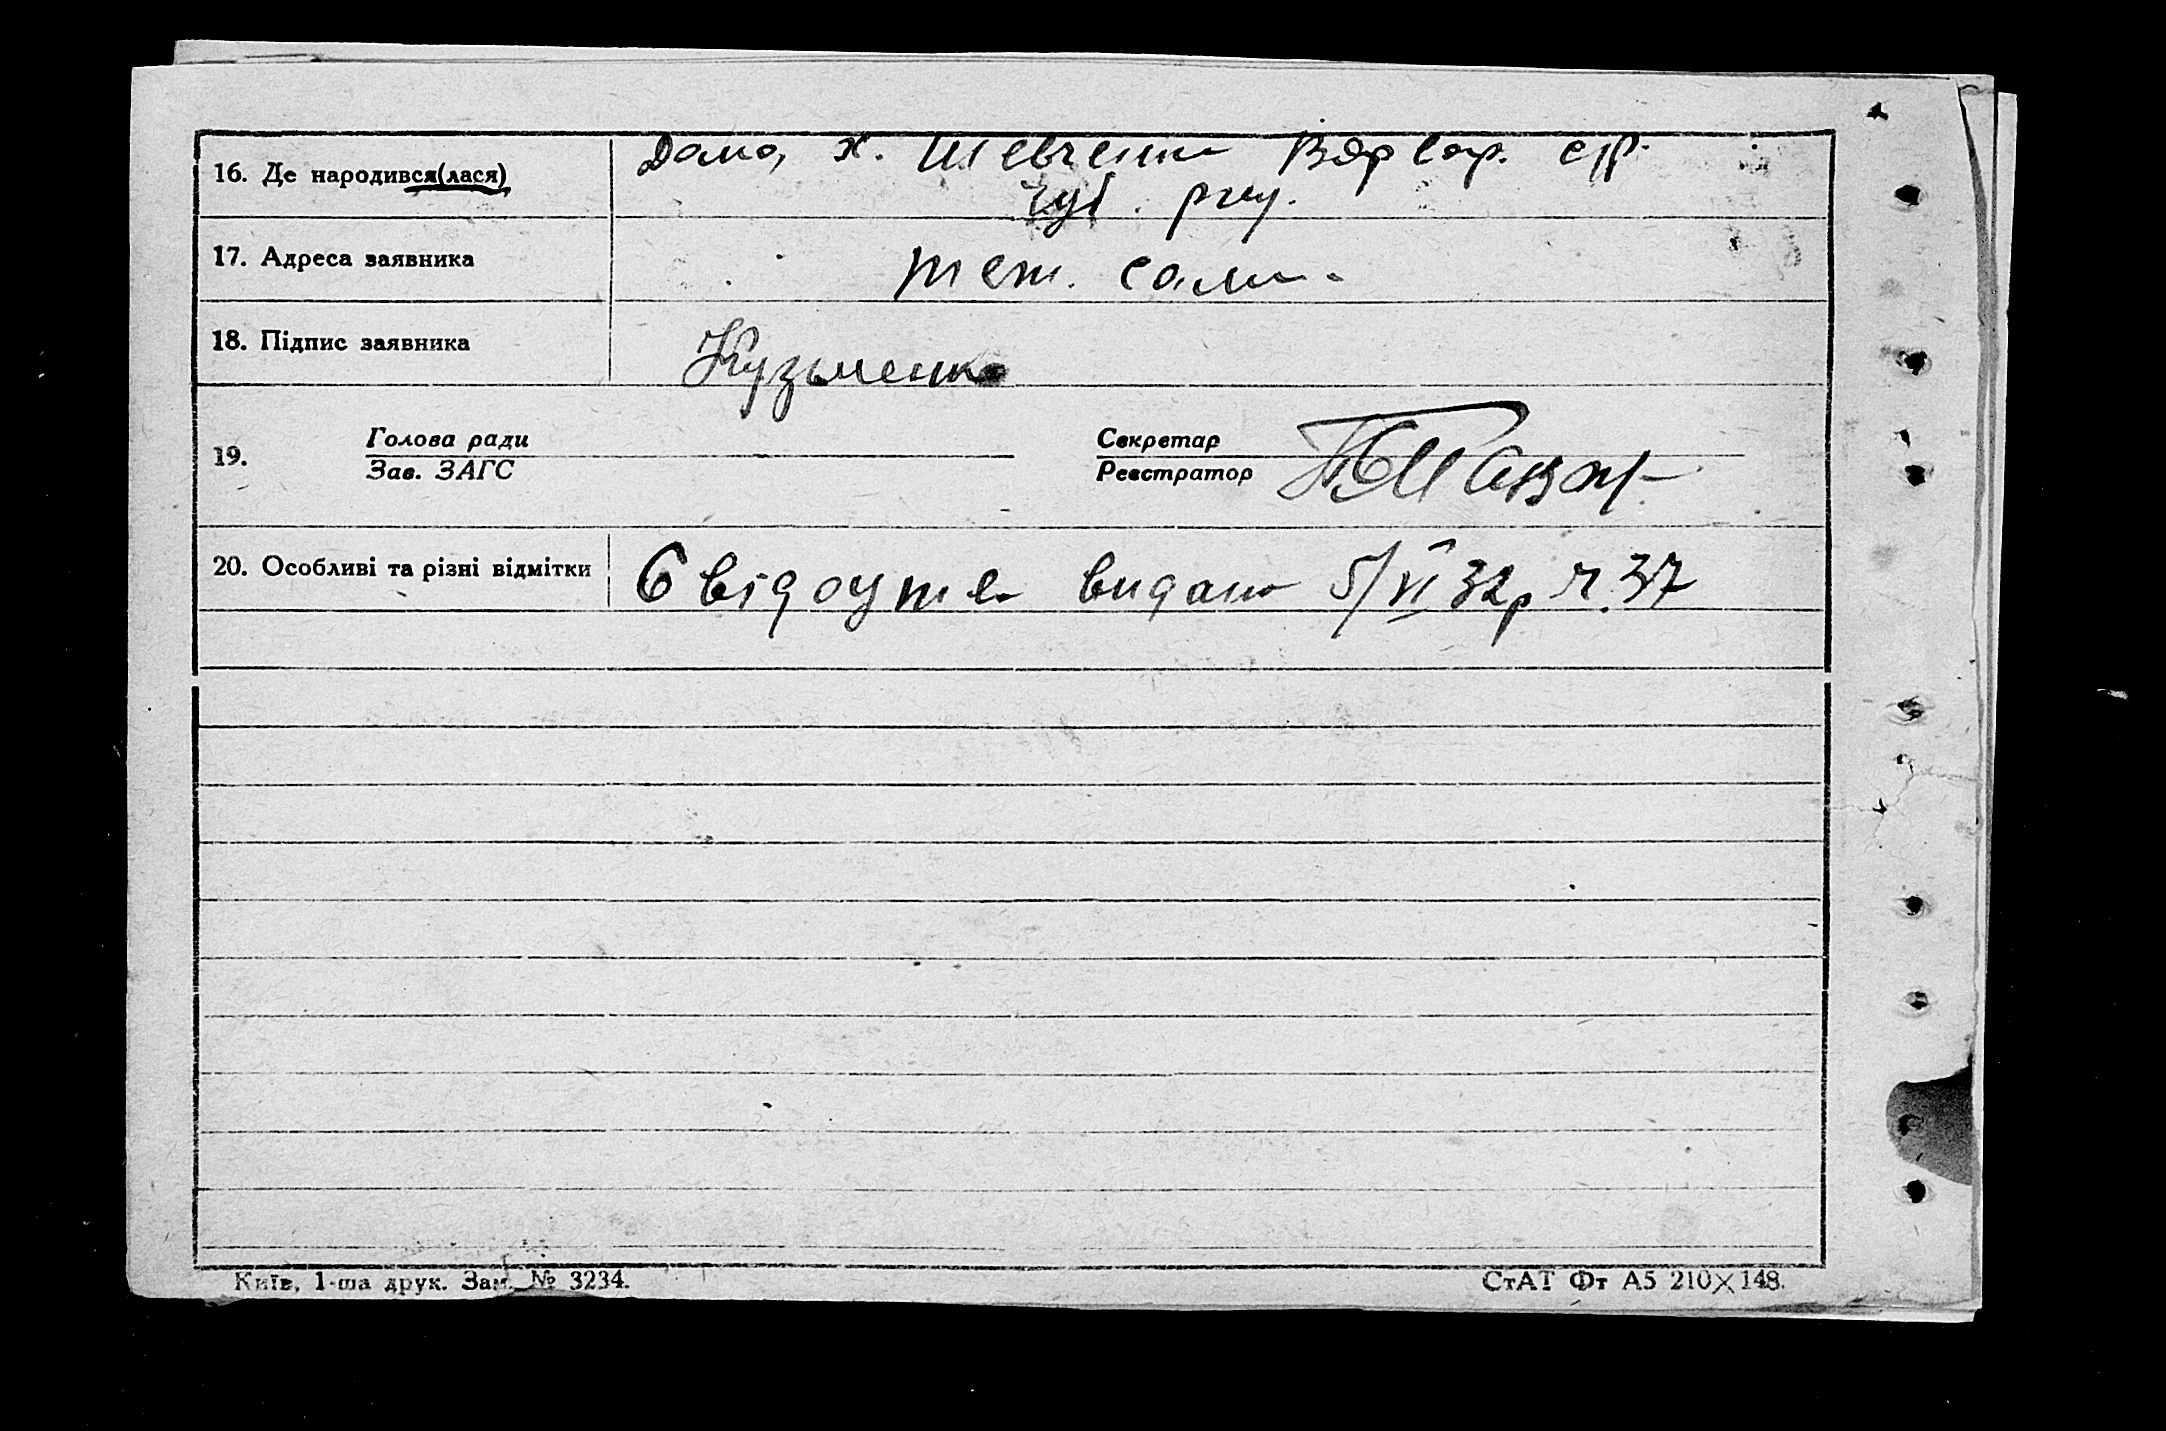 16. Де народився(лася) Дома, х. Шевченки Варвар. с/р.
Чуб. рну.
17. Адреса заявника теж. саме.
18. Підпис заявника Кузьменко
19. Голова ради Секретар
Зав. ЗАГС Реєстратор
20. Особливі та різні відмітки Свідоцтво видано 5/VI 32р ч. 37
Київ, 1-ша друк. Зам. № 3234. СтАТ Фт А5 210×148.